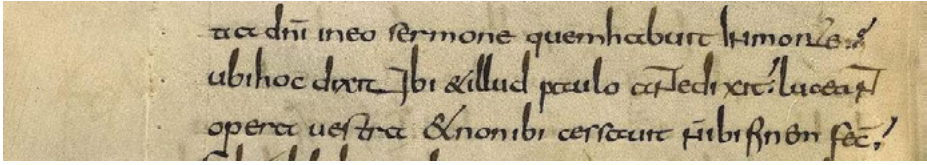 ta dn̄i ineo sermone quemhabuit Inmonte.
ubihoc dixit. Ibi &illud paulo antedixit. luceant
opera uestra &nonibi cessauit